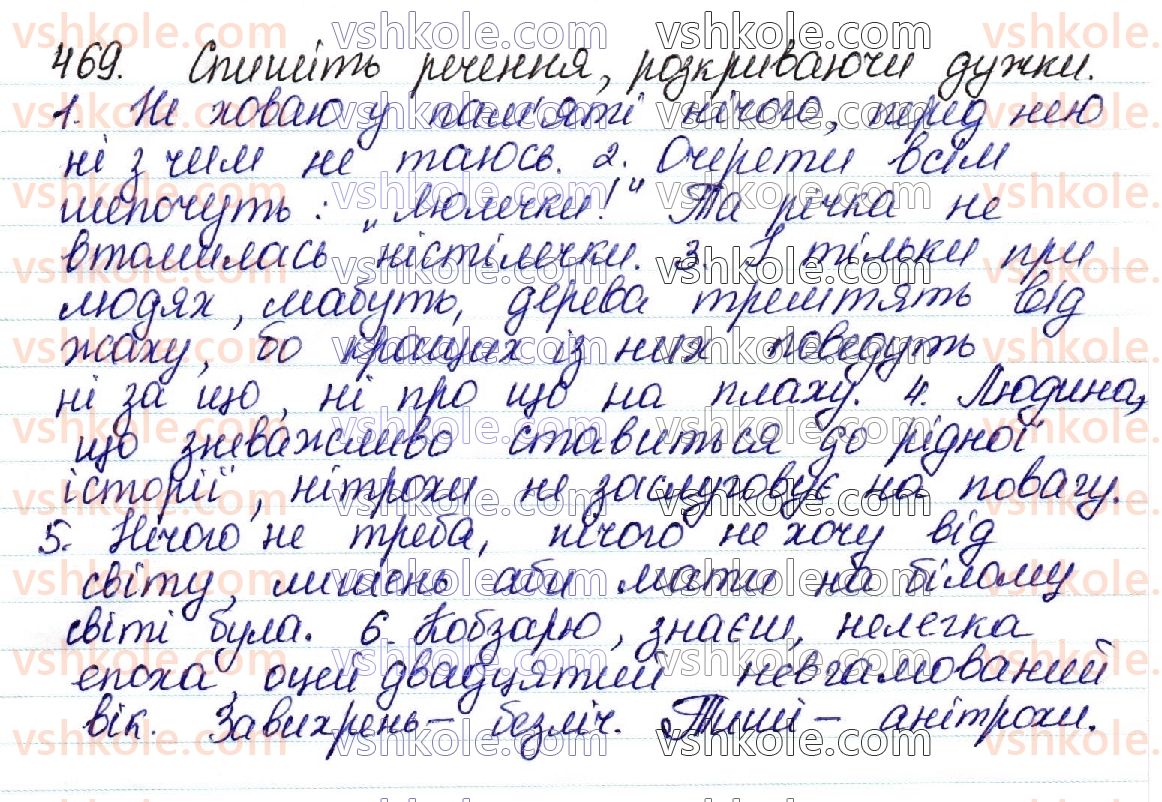 469. Спишіть речення, розкриваючи дужки.
1. Не ховаю у пам'яті нічого, перед нею
ні з чим не таюсь. 2. Очерети всім
шепочуть: „Люлечки!" Та річка не
втомилась ністілечки. 3. І тільки при
людях, мабуть, дерева тремтять від
жаху, бо кращих із них поведуть
ні за що, ні про що на плаху. 4. Людина,
що зневажливо ставиться до рідної
історії, нітрохи не заслуговує на повагу.
5. Нічого не треба, нічого не хочу від
світу, лишень аби мати на білому
світі була. 6. Кобзарю, знаєш, нелегка
епоха, оцей двадцятий невгамований
вік. Завихрень – безліч. Тиші – анітрохи.
vshkole.com